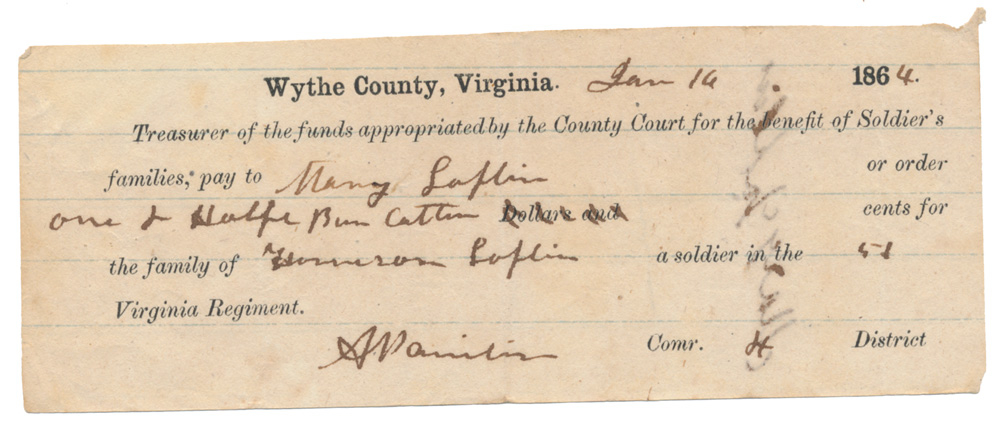 Wythe County, Virginia. Jan 14 1864.
Treasurer of the funds appropriated by the County Court for the benefit of Soldier's
families, pay to Mary Loflin or order
one & Halfe Bun Cotten Dollars and cents for
the family of Loflin a soldier in the 51
Virginia Regiment.
Comr. 4 District